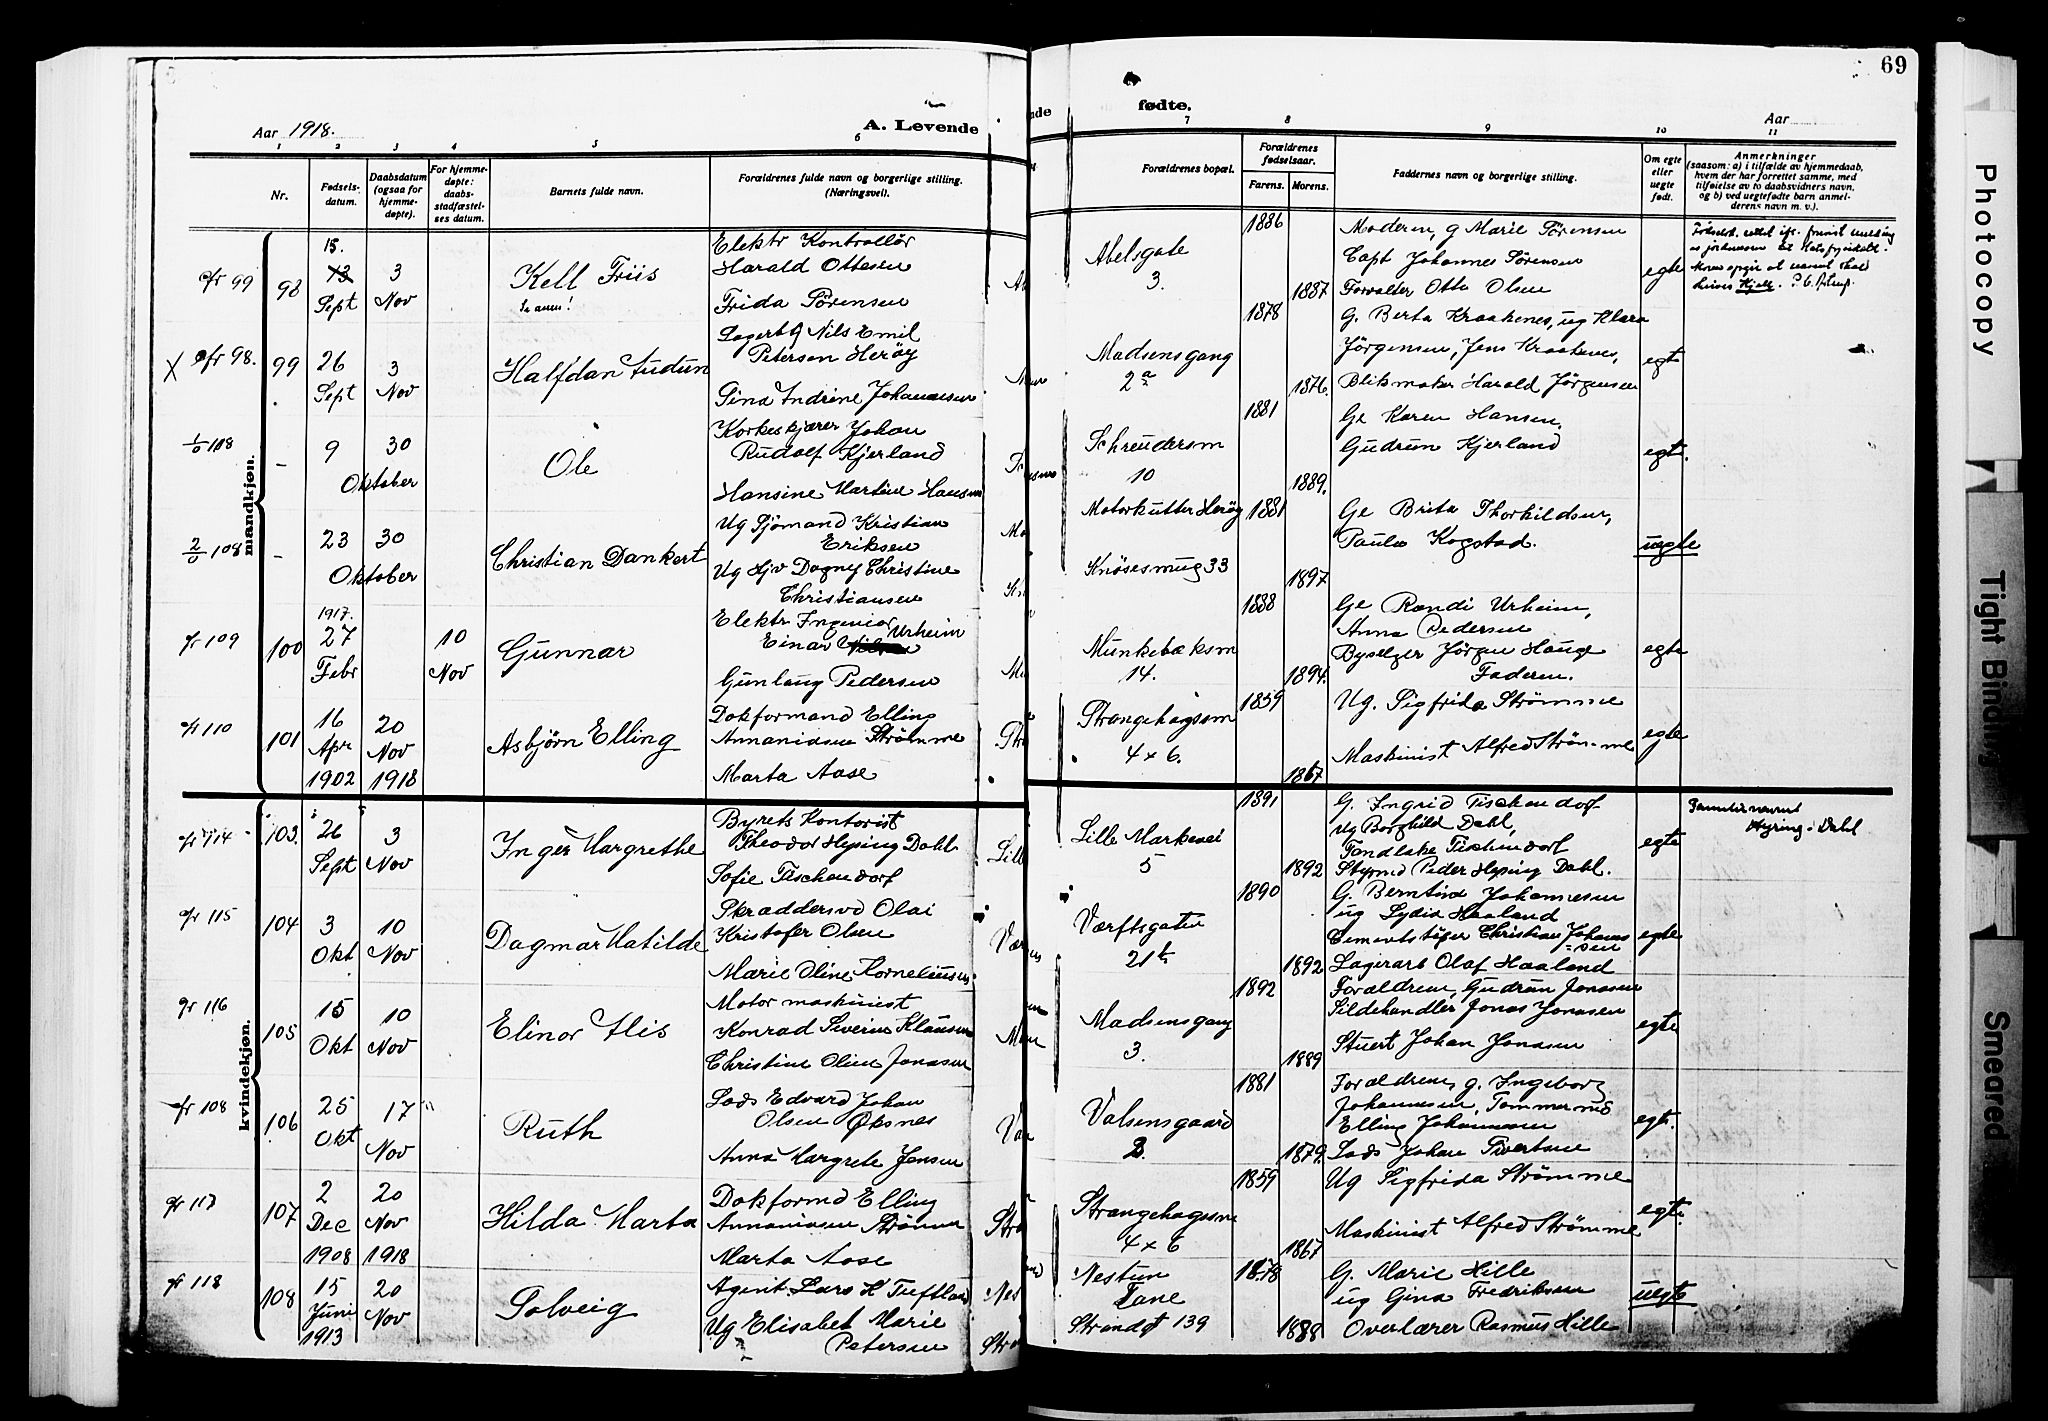 69
Aar 1918.
A. Levende
fødte.
Aar
1 2 3 4 5 6 7 8 9 10 11
Nr.
Fødsels-
datum.
Daabsdatum
(ogsaa for
hjemme-
døpte).
For hjemme-
døpte:
daabs-
stadfæstel-
ses datum.
Barnets fulde navn.
Forældrenes fulde navn og borgerlige stilling.
(Næringsvei).
Forældrenes bopæl.
Forældrenes
fødselsaar.
Farens. Morens.
Faddernes navn og borgerlige stilling.
Om egte
eller
uegte
født.
Anmerkninger
(saasom: a) i tilfælde av hjemmedaab,
hvem der har forrettet samme, med
tilføielse av to daabsvidners navn,
og b) ved uegtefødte barn anmel-
derens navn m. v.).
mandkjøn.
99
98
13
Sept
3
Nov
Kell Friis
Elektr Kontrollør
Harald Ottesen
Frida Sørensen
Abelsgate
3.
1886
1887
Moderen, g Marie Sørensen
Capt Johannes Sørensen
Forvalter Otto Olsen
egte
Kjell
X 98.
99
26
Sept
3
Nov
Halfdan Audun
Lagerb Nils Emil
Peterson Herøy
Sina Andrine Johannesen
Madsensgang
2a
1878
1876.
G. Berta Kraakenes, ug Klara
Jørgensen, Jens Kraakenes,
Blikmaker Harald Jørgensen
egte
108
–
9
30
Oktober
Ole
Korkeskjærer Johan
Rudolf Kjerland
Hansine Martine Hansen
Schreudersm
10
1881
1889.
Ge Karen Hansen,
Gudrun Kjerland
egte.
108
–
23
30
Oktober
Christian Dankert
Ug Sjømand Kristian
Eriksen
Ug Hjv Dagny Christine
Christiansen
Motorkutter Herøy
Knøsesmug 33
1881
1897
Ge Brita Thorkildsen,
Paula Kogstad.
uegte
109
100
1917.
27
Febr
10
Nov
Gunnar
Elektr Ingeniør
Einar Urheim
Gunlaug Pedersen
Munkebæksm
14.
1888
1894.
Ge Randi Urheim,
Anna Pedersen
Byselger Jørgen Hauge
Faderen.
egte
110
101
16
Apr
1902
20
Nov
1918
Asbjørn Elling
Dokformand Elling
Annaniasen Strømme
Marta Aase
Strangehagesm
4 x 6.
1859
1867
Ug. Sigfrida Strømme
Maskinist Alfred Strømme
egte
kvindekjøn.
114
103.
26
Sept
3
Nov
Inger Margrethe
Byrets Kontorist
Theodor Hysing Dahl
Sofie Tischendorf
Lille Markevei
5
1891
1892
G. Ingrid Tischendorf
Ug Borghild Dahl,
Tandlæke Tischendorf
Styrmd Peder Hysing Dahl.
egte
Familienavnet
Hysing-Dahl
115
104
3
Okt
10
Nov
Dagmar Matilde
Skræddersvd Olai
Kristofer Olsen
Marie Oline Korneliusen
Værftsgaten
21b
1890
1892
G. Berntine Johannesen
ug Lydia Haaland
Cementstøper Christian Johans
=sen
Lagerarb Olaf Haaland
egte
116
105
15
Okt
10
Nov
Elinor Alis
Motor maskinist
Konrad Severin Klausen
Christine Oline Jonasen
Madsensgang
3.
1892
1889
Forældrene, Gudrun Jonasen
Sildehandler Jonas Jonasen
Stuert Johan Jonasen
egte
108
106
25
Okt
17
Nov
Ruth
Lods Edvard Johan
Olsen Øksnes
Anna Margrete Jensen
Valsensgaard
3.
1881
1879.
Forældrene, g. Ingeborg
Johannesen, Tømmermd
Elling Johannesen
Lods Johan Sivertsen
egte.
117
107
2
Dec
1908
20
Nov
1918
Hilda Marta
Dokformd Elling
Annaniasen Strømme
Marta Aase
Strangehagesm
4 x 6
1859
1867
Ug Sigfrida Strømme
Maskinist Alfred Strømme
egte.
118
108
15
Juni
1913
20
Nov
Solveig
Agent Lars K Tuftland
Ug Elisabet Marie
Petersen
Nestun
Fane
Strandgt 139
1878
1888
G. Marie Hille
ug Gina Fredriksen
Overlærer Rasmus Hille
uegte
Photocopy
Tight Binding
Smeared